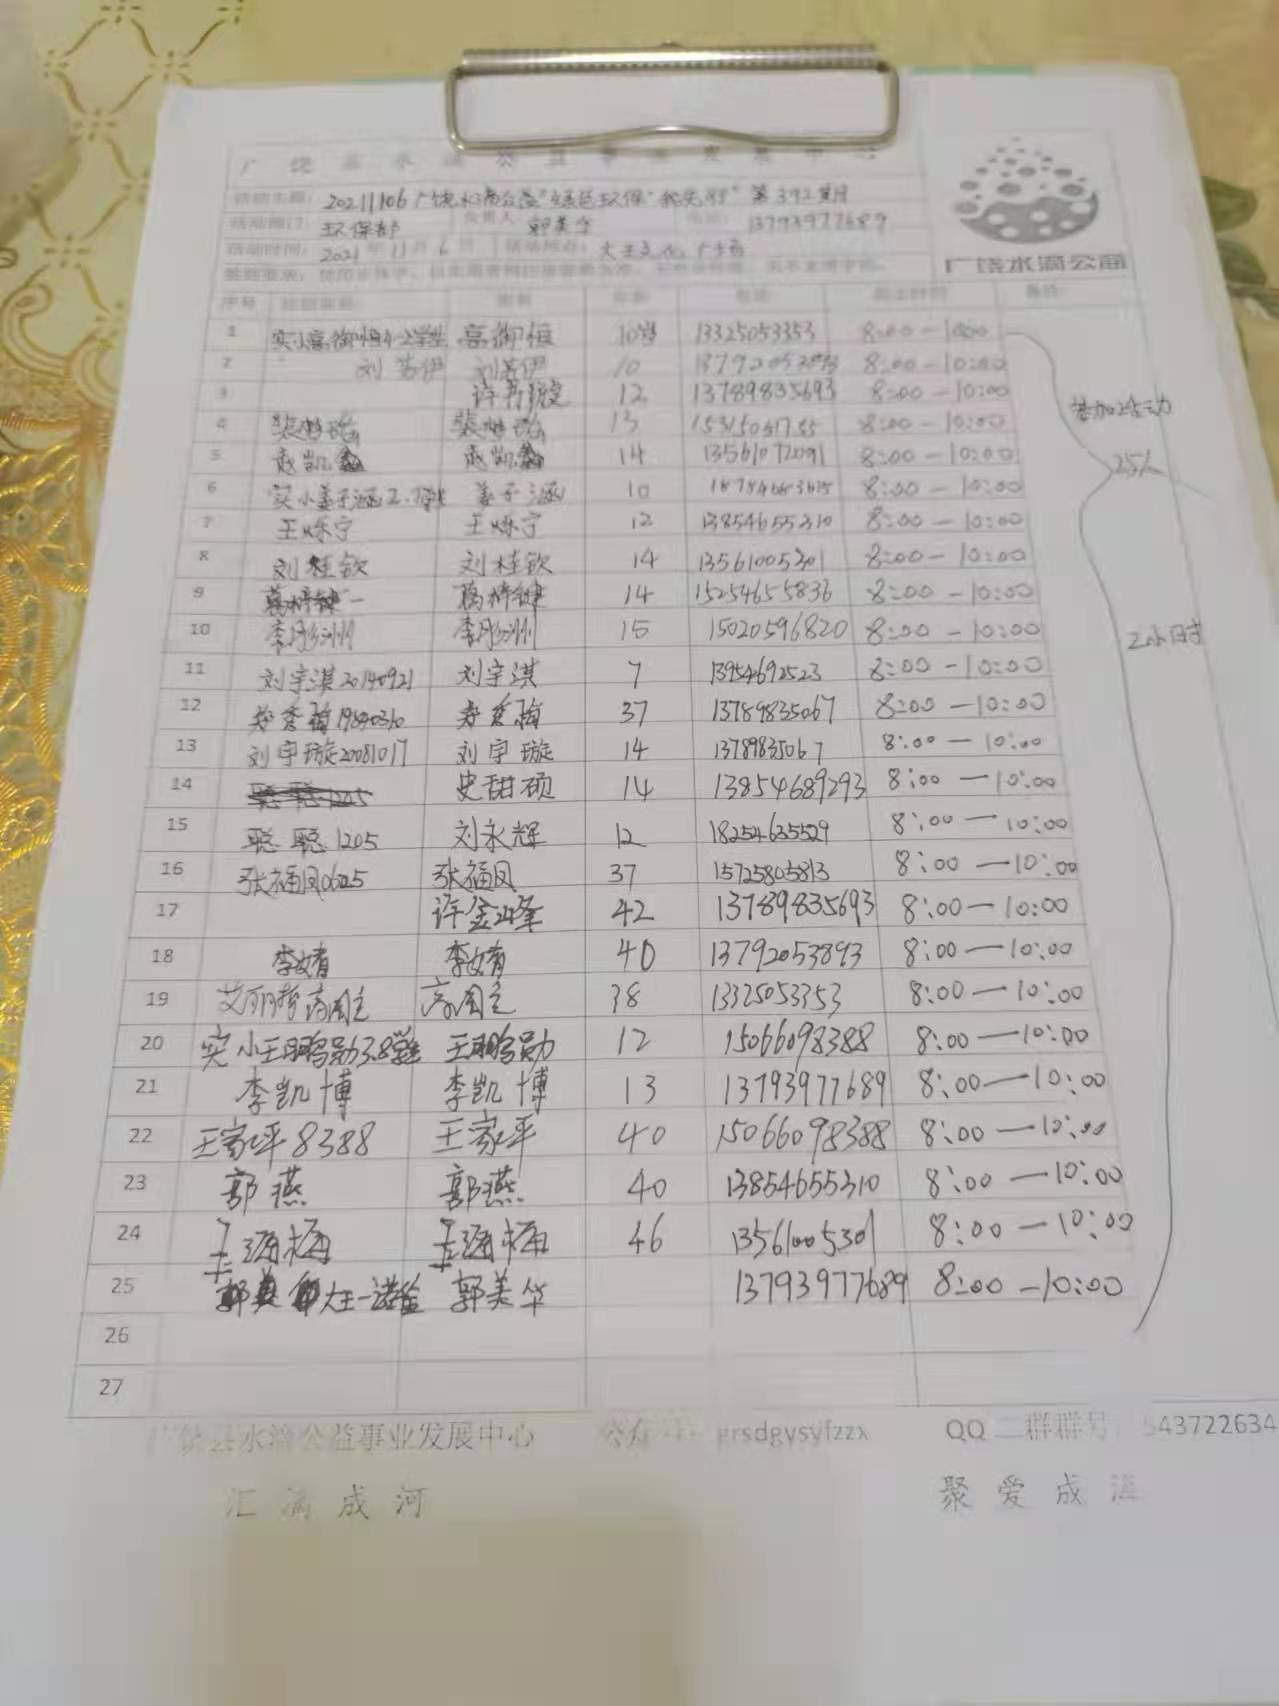 广饶县水滴公益事业发展中心
活动主题： 20211106广饶水滴公益"绿色环保 我先行"第392期
活动部门： 环保部 负责人 郭美华 电话： 13793977689
活动时间： 2021年11月6日 活动地点： 大王 广场
广饶水滴公益
序号 姓名 年龄 电话 备注
1 实小高御恒4.2学生 高御恒 10岁 13325053353 8:00-10:00
2 刘苏伊 刘苏伊 10 8:00-10:00
3 12 13789835693 8:00-10:00
参加活动
4 13 8:00-10:00
5 赵凯 赵凯 14 13561072091 8:00-10:00
25人
6 实小姜子涵2.7学生 姜子涵 10 8:00-10:00
7 王烁宁 王烁宁 12 13854655310 8:00-10:00
8 刘桂钦 刘桂钦 14 13561005301 8:00-10:00
9 14 15254655836 8:00-10:00
10 李彤洲 李彤洲 15 15020596820 8:00-10:00
2小时
11 刘宇淇20140921 刘宇淇 7 13954692523 8:00-10:00
12 19840310 37 13789835067 8:00-10:00
13 刘宇璇20081017 刘宇璇 14 13789835067 8:00-10:00
14 史甜硕 14 13854689293 8:00-10:00
15 聪聪1205 刘永辉 12 18254635529 8:00-10:00
16 张福凤0625 张福凤 37 15725805813 8:00-10:00
17 许金峰 42 13789835693 8:00-10:00
18 李婧 李婧 40 13792053893 8:00-10:00
19 38 13325053353 8:00-10:00
20 实小王鹏勋3.8学生 王鹏勋 12 15066098388 8:00-10:00
21 李凯博 李凯博 13 13793977689 8:00-10:00
22 王家坪8388 王家坪 40 15066098388 8:00-10:00
23 郭燕 郭燕 40 13854655310 8:00-10:00
24 46 13561005301 8:00-10:00
25 郭美华 13793977689 8:00-10:00
26
27
广饶县水滴公益事业发展中心 公众号：grsdgysyfzzx QQ二群群号 543722634
汇滴成河 聚爱成